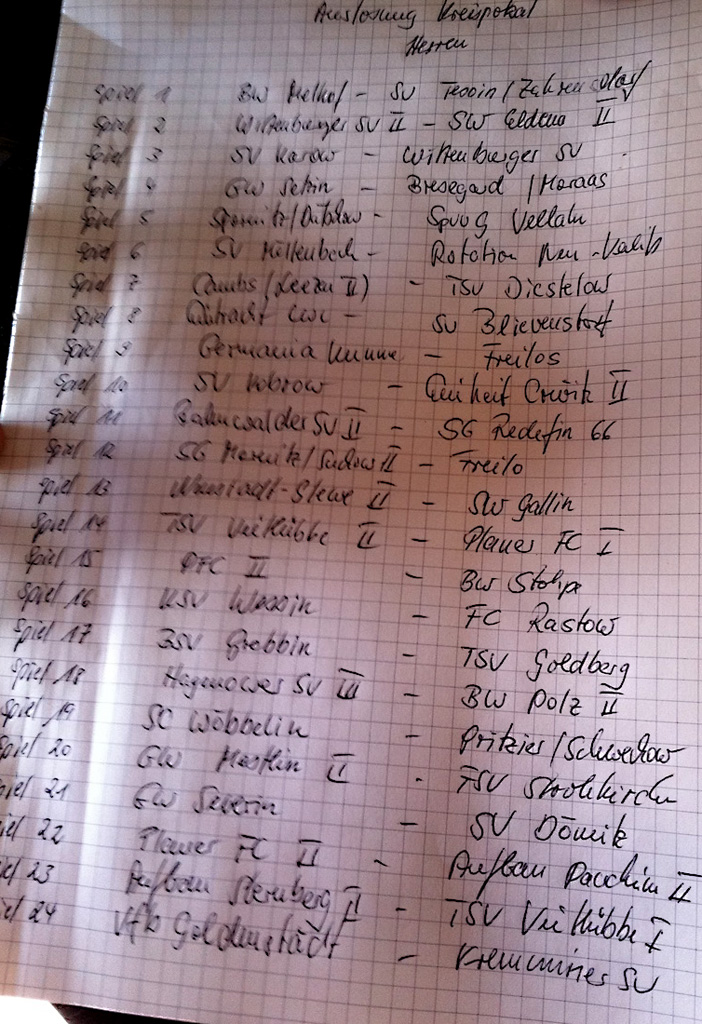 Auslosung Kreispokal
Herren
Spiel 1 BW Melkof - SV Tessin/Zahrensdorf
Spiel 2 Wittenburger SV II - SW Eldena II
Spiel 3 SV Karow - Wittenburger SV
Spiel 4 GW Sehin - Bresegard/Moraas
Spiel 5 Spornitz/Dütschow - Spvgg Vellahn
Spiel 6 SV - Rotation Neu-Kaliß
Spiel 7 Cambs/Leezen II) - TSV Diestelow
Spiel 8 Eintracht Lwl - SV Blievenstorf
Spiel 9 Germania - Freilos
Spiel 10 SV Kobrow - Einheit Crivitz II
Spiel 11 SV II - SG Redefin 66
Spiel 12 SG Marnitz/Suckow II - Freilo
Spiel 13 Neustadt-Glewe II - SW Gallin
Spiel 14 TSV Vietlübbe II - Plauer FC I
Spiel 15 PFC II - BW
Spiel 16 KSV Wessin - FC Rastow
Spiel 17 BSV Grebbin - TSV Goldberg
Spiel 18 Hagenower SV III - BW Polz II
Spiel 19 SC Wöbbelin - Pritzier/Schwechow
Spiel 20 GW Mestlin II - FSV Strohkirchen
iel 21 GW Severin - SV Dömitz
iel 22 Plauer FC II - Aufbau Parchim II
iel 23 Aufbau Sternberg II - TSV Vietlübbe I
iel 24 Vfb Goldenstädt - Kremminer SV